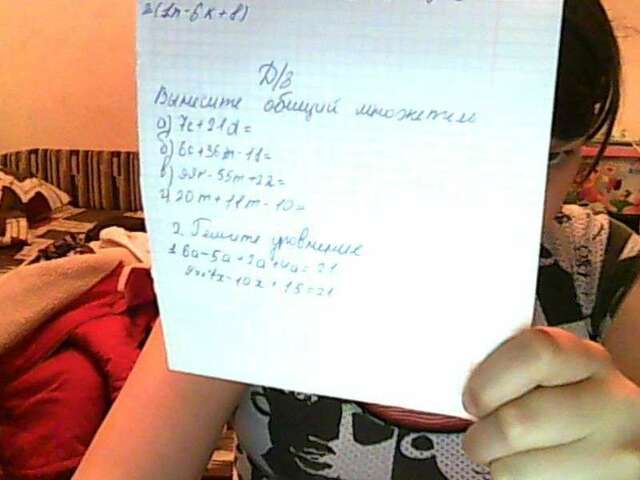 2(1n-6k+8)
Д/з
Вынесите общий множетель
а) 7c+21d=
б) 6c+36m-18=
в) 33n-55m+22=
г) 20m+11m-10=
2. Решите уровнение
1. 6a-5a+2a+4a=21
9x+x-10x+15=21